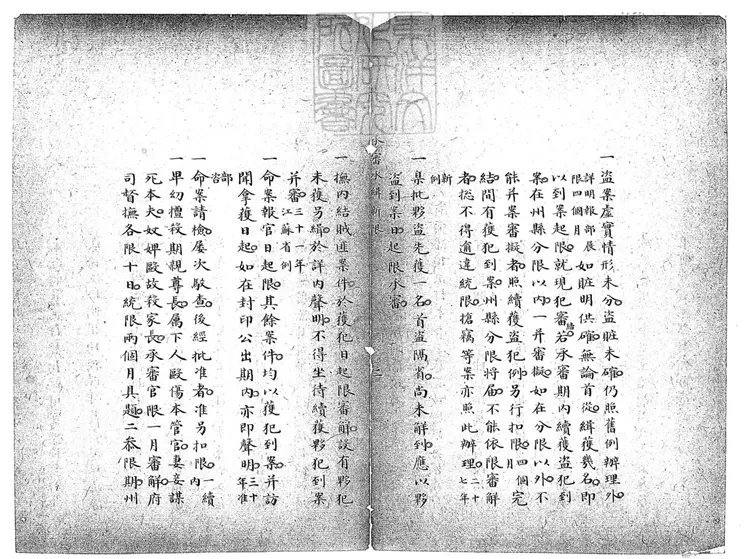 一盜案虛實情形未分盜賍未確仍照舊例辦理外
詳明報部展
限四個月
如賍明供確無論首從緝獲幾名即
以到案起限就現犯審結若承審期內續獲盜犯到
案在州縣分限以內一并審擬如在分限以外不
能并案審擬者照續獲盜犯例另行扣限四個月完
結間有獲犯到案州縣分限將届不能依限審解
者總不得逾違統限搶竊等案亦照此辦理二十
七年
新
例
一集批夥盜先獲一名首盜隔省尚未解到應以夥
盜到案日起限承審
一撫內結賊匪案件於獲犯日起限審解設有夥犯
未獲另緝於詳內聲明不得坐待續獲夥犯到案
并審三十一年
江蘇省例
一命案報官日起限其餘案件均以獲犯到案并訪
聞拿獲日起如在封印公出期內亦即聲明三十
年准
部
咨
一命案請檢屡次駁查後經批准者准另扣限一續
內
一卑幼擅殺期親尊長屬下人毆傷本管官妻妾謀
死本夫奴婢毆故殺家長承審官限一月審解府
司督撫各限十日統限兩個月具題二叅限期州